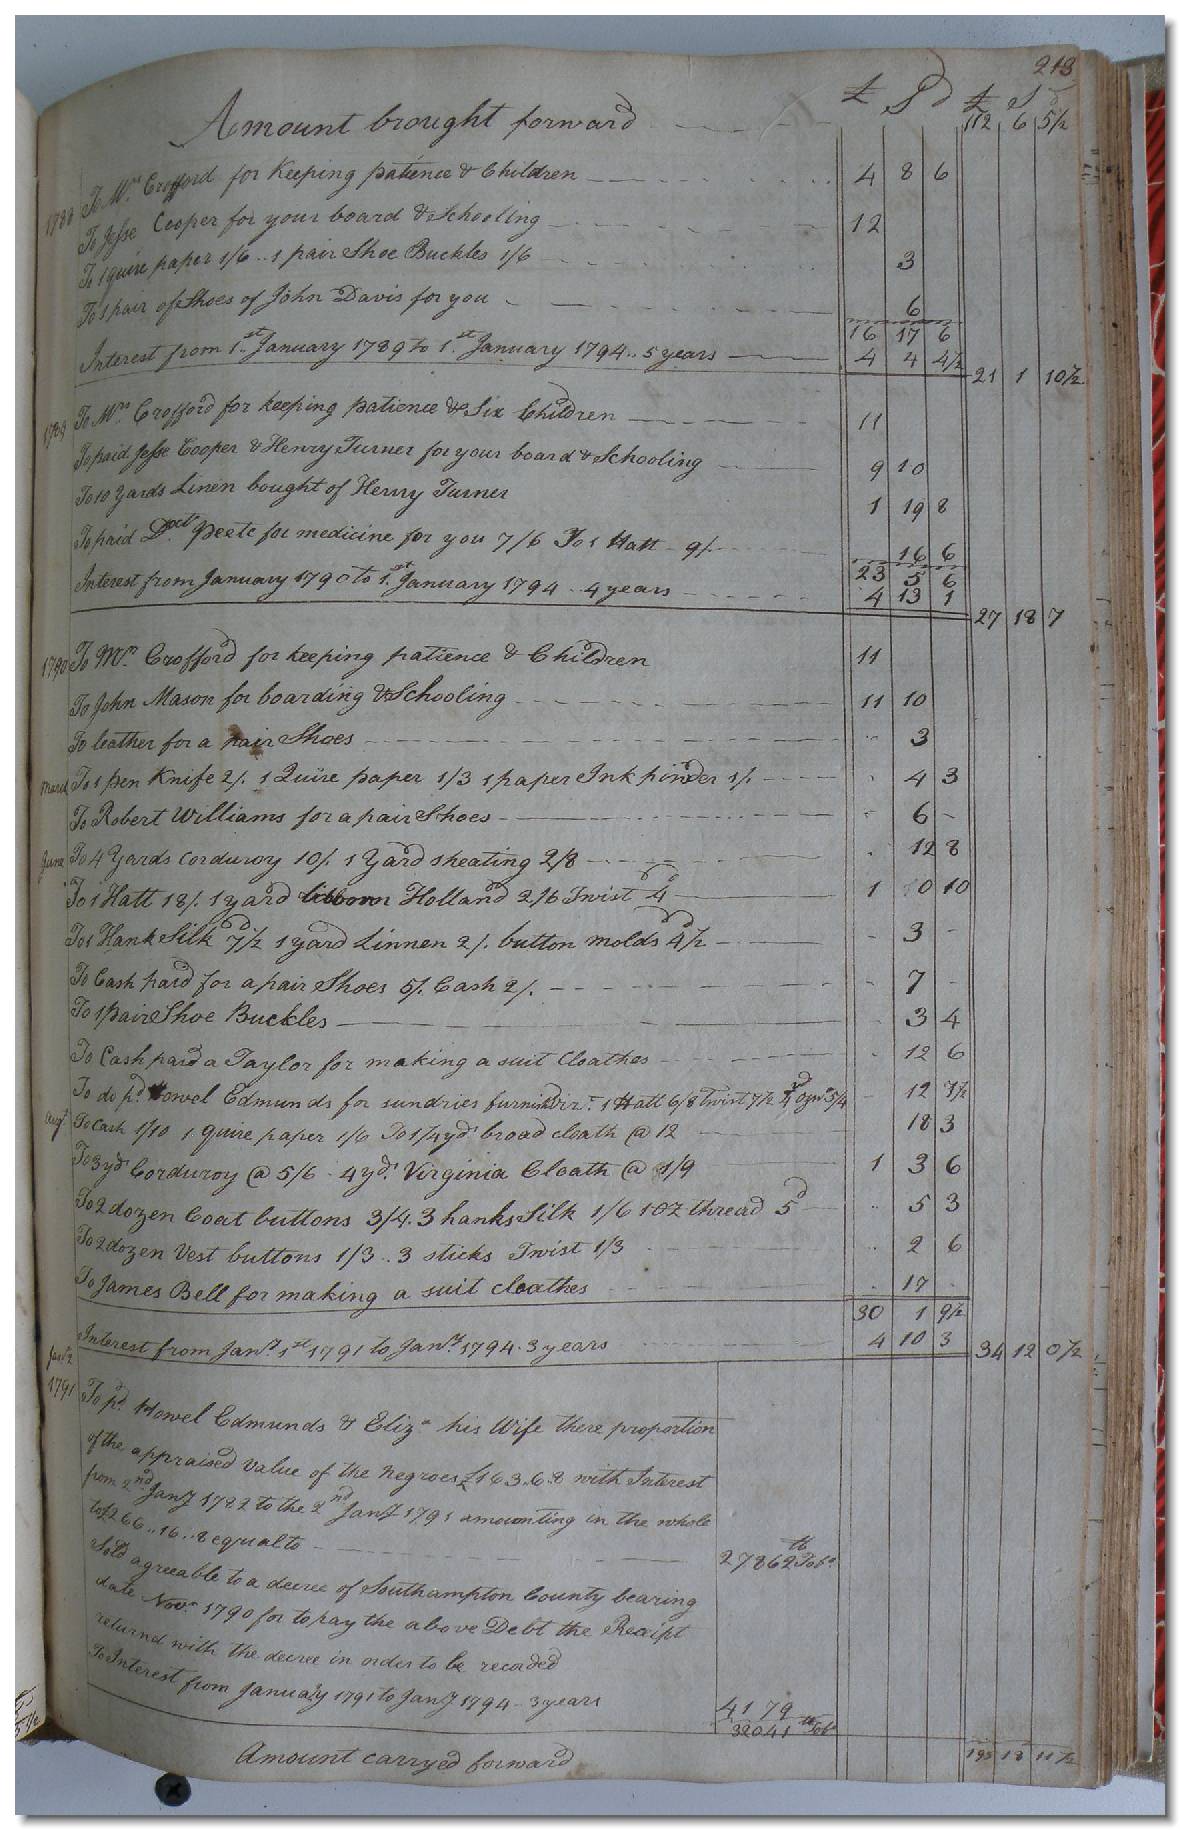 213
£ S d £ S d
Amount brought forward 112 6 5½
1788 To Mrs. Crofford for Keeping patience & Children 4 8 6
To Jesse Cooper for your board & Schooling 12
To 1 quire paper 1/6 .. 1 pair Shoe Buckles 1/6 3
To 1 pair of Shoes of John Davis for you 6
16 17 6
Interest from 1st January 1789 to 1st January 1794 .. 5 years 4 4 4½ 21 1 10½
1789 To Mrs. Crofford for keeping patience & Six Children 11
To paid Jesse Cooper & Henry Turner for your board & Schooling 9 10
To 10 Yards Linen bought of Henry Turner 1 19 8
To paid Doct. Peete for medicine for you 7/6 To 1 Hatt 9/ 16 6
23 5 6
Interest from January 1790 to 1st January 1794 .. 4 years 4 13 1 27 18 7
1790 To Mrs. Crofford for keeping patience & Children 11
To John Mason for boarding & Schooling 11 10
To leather for a pair Shoes 3
March To 1 pen Knife 2/. 1 Quire paper 1/3 1 paper Ink pinder 1/. 4 3
To Robert Williams for a pair Shoes 6 -
June To 4 Yards Corduroy 10/. 1 Yard sheating 2/8 12 8
To 1 Hatt 18/. 1 yard Holland 2/6 Twist 4d 1 0 10
To 1 Hank Silk 7½d 1 yard Linnen 2/. button molds 4½d 3 -
To Cash paid for a pair Shoes 5/. Cash 2/. 7
To 1 Pair Shoe Buckles 3 4
To Cash paid a Taylor for making a suit Cloathes 12 6
To do pd. Howel Edmunds for sundries 1 Hatt 6/8 Twist 7½ 5/4 12 7½
Augt. To Cash 1/10 1 quire paper 1/6 To 1¼ yds broad cloath @ 12 18 3
To 3 yds Corduroy @ 5/6 - 4 yds. Virginia Cloath @ 1/9 1 3 6
To 2 dozen Coat buttons 3/4. 3 hanks Silk 1/6 1 oz thread 5d 5 3
To 2 dozen Vest buttons 1/3 .. 3 sticks Twist 1/3 2 6
To James Bell for making a suit cloathes 17
30 1 9½
Interest from Jany. 1st 1791 to Jany. 1794 . 3 years 4 10 3 34 12 0½
Jany 2
1791 To pd. Howel Edmunds & Eliza. his Wife there proportion
of the appraised value of the Negroes £163..6..8 with Interest
from 2nd Jany 1782 to the 2nd Jany 1791 amounting in the whole
to £266..16..8 equal to 27862 lb Tobo.
Sold agreeable to a decree of Southampton County bearing
date Novr. 1790 for to pay the above Debt the Receipt
returnd with the decree in order to be recorded
To Interest from January 1791 to Jany 1794 - 3 years 4179
32041 lb Tobo
Amount carryed forward 195 18 11½